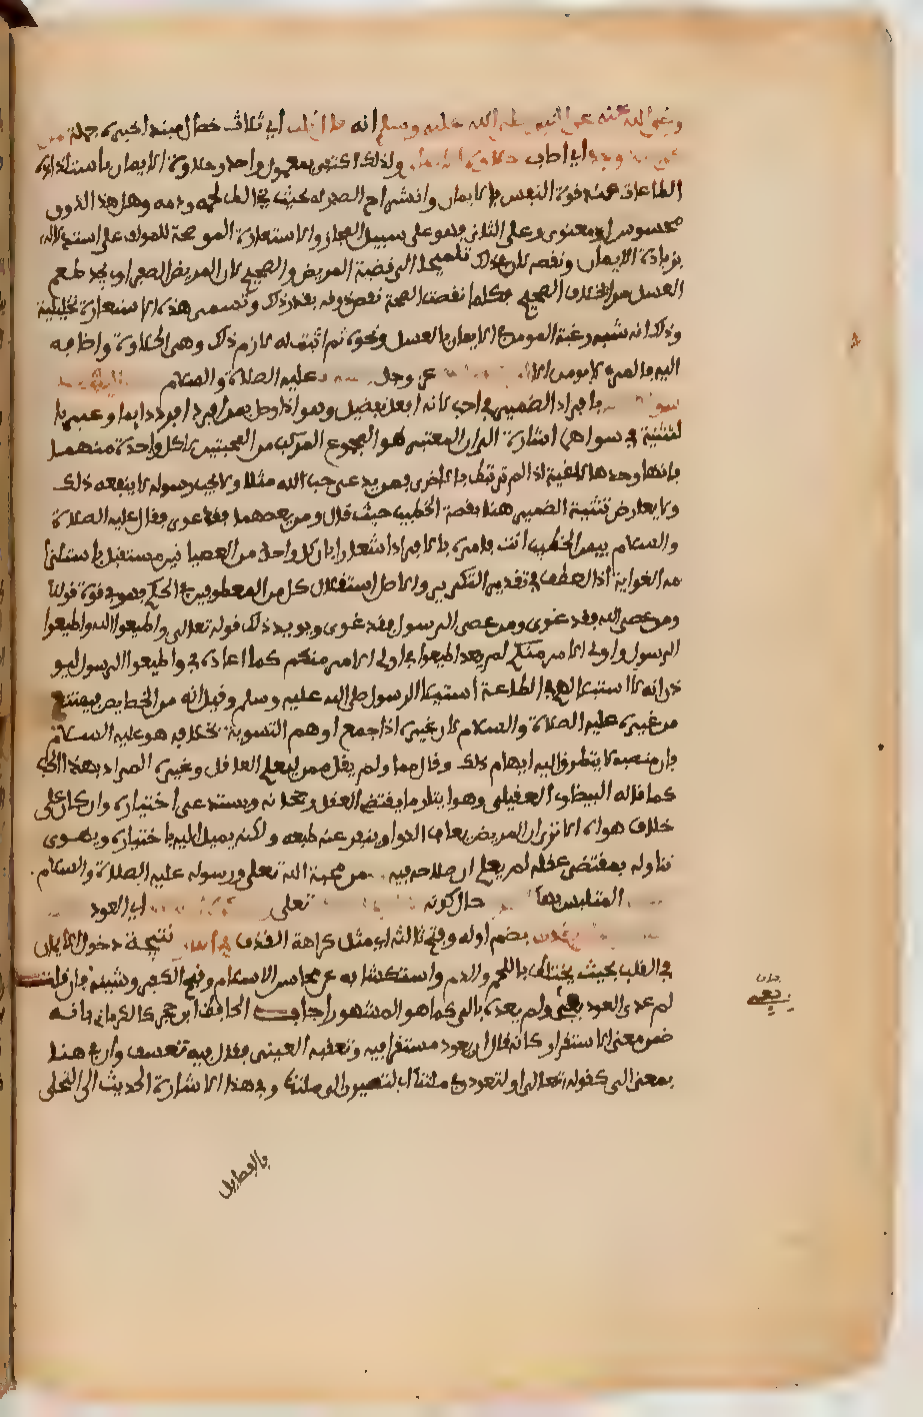 رضي الله عنه عن النبي صلى الله عليه وسلم انه قال ثلاث اي ثلاث خصال مبتدا خبره جملة من
كن فيه وجد اي اصاب حلاوة الايمان ولذلك اكتفى بمفعول واحد وحلاوة الايمان باستلذاذه
الطاعات عند قوة النفس بالايمان وانشراح الصدر له بحيث يخالط لحمه ودمه وهل هذا الذوق
محسوس او معنوي وعلى الثاني فهو على سبيل المجاز والاستعارة الموضحة للمؤلف على استدلاله
بزيادة الايمان ونقصه لان في ذلك تلميحا الى قضية المريض والصحيح لان المريض الصفراوي يجد طعم
العسل مرا بخلاف الصحيح فكلما نقصت الصحة نقص ذوقه بقدر ذلك وتسمى هذه الاستعارة تخييلية
وذلك انه شبه رغبة المومن في الايمان بالعسل ونحوه ثم اثبت له لازم ذلك وهي الحلاوة واضافه
اليه فالمرء لا يومن الا عز وجل عليه الصلاة والسلام
بافراد الضمير في احب لانه افعل تفضيل وهو اذا وصل بمن افرد دايما وعبر با
لتثنية في سواهما اشارة الى ان المعتبر هو المجموع المركب من المحبتين لا كل واحدة منهما
فانها وحدها لاغية اذا لم ترتبط بالاخرى فمن يدعي حب الله مثلا ولا يحب رسوله لا ينفعه ذلك
ولا يعارض تثنية الضمير هنا بقصة الخطيب حيث قال ومن يعصهما فقد غوى فقال عليه الصلاة
والسلام بيس الخطيب انت فامره بالافراد اشعارا بان كل واحد من العصيانين مستقل باستلزا
مه الغواية اذ العطف في تقدير التكرير والاصل استقلال كل من المعطوفين في الحكم فهو في قوة قولنا
ومن عصى الله فقد غوى ومن عصى الرسول فقد غوى ويويد ذلك قوله تعالى واطيعوا الله واطيعوا
الرسول واولي الامر منكم لم يعد اطيعوا في اولي الامر منكم كما اعاده في واطيعوا الرسول ليو
ذن انه لا استقلال لهم في الطاعة استقلال الرسول صلى الله عليه وسلم وقيل انه من الخصايص فيمتنع
من غيره عليه الصلاة والسلام لان غيره اذا جمع اوهم التسوية بخلافه هو عليه السلام
فان منصبه لا يتطرق اليه ايهام ذلك وقال مما ولم يقل ممن ليعم العاقل وغيره المراد بهذا الحب
كما قاله البيضاوي العقلي وهو ايثار ما يقتضي العقل رجحانه ويستدعي اختياره وان كان على
خلاف هواه الا ترى ان المريض يعاف الدوا وينفر عنه طبعه ولكنه يميل اليه باختياره ويهوى
تناوله بمقتضى عقله لما يعلم ان صلاحه فيه من محبة الله تعلى ورسوله عليه الصلاة والسلام
المتلبس بها حال كونه تعلى اي العود
يقذف بضم اوله وفتح ثالثه اي مثل كراهة القذف في النار نتيجة دخول الايمان
في القلب بحيث يختلط باللحم والدم واستكشافه عن محاسن الاسلام وقبح الكفر وشينه فان قلت
لم عدى العود بفي ولم يعده بالى كما هو المشهور اجاب الحافظ ابن حجر كالكرماني بانه
ضمن معنى الاستقرار كانه قال ان يعود مستقرا فيه وتعقبه العيني فقال فيه تعسف وان في هنا
بمعنى الى كقوله تعالى او لتعودن في ملتنا اي لتصيرن الى ملتنا وفي هذا الاشارة الحديث الى التحلي
بالفضايل